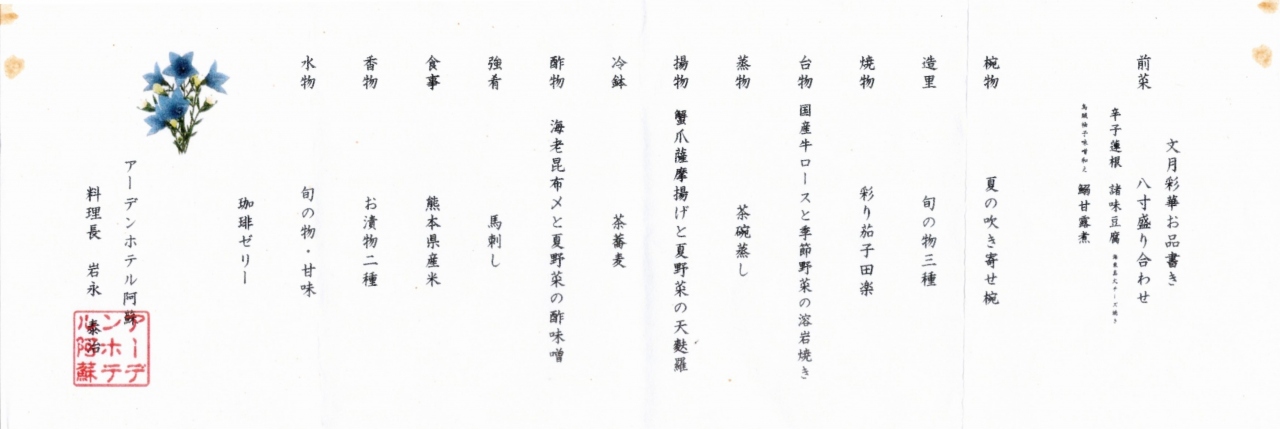 文月彩華お品書き
前菜 八寸盛り合わせ
辛子蓮根 諸味豆腐 海老真丈チーズ焼き
烏賊柚子味噌和え 鰯甘露煮
椀物 夏の吹き寄せ椀
造里 旬の物三種
焼物 彩り茄子田楽
台物 国産牛ロースと季節野菜の溶岩焼き
蒸物 茶碗蒸し
揚物 蟹爪薩摩揚げと夏野菜の天麩羅
冷鉢 茶蕎麦
酢物 海老昆布〆と夏野菜の酢味噌
強肴 馬刺し
食事 熊本県産米
香物 お漬物二種
水物 旬の物・甘味
珈琲ゼリー
アーデンホテル阿蘇
料理長 岩永 泰治
アーデ
ンホテ
ル阿蘇